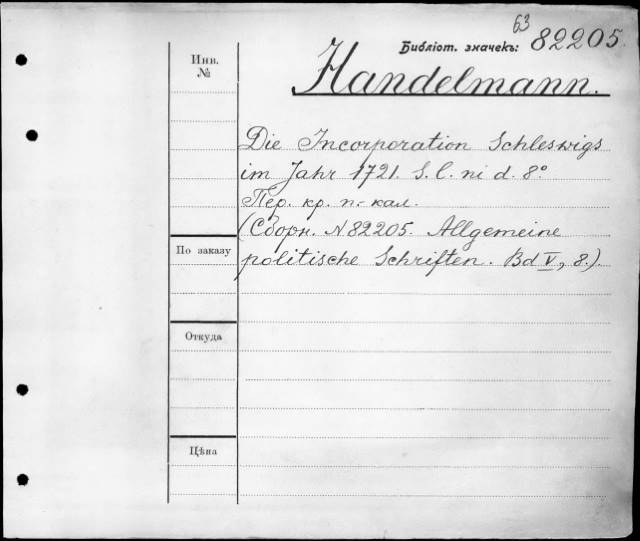 63
Библіот. значекъ: 82205.
Инв.
№
Handelmann.
Die Incorporation Schleswigs
im Jahr 1721. S. l. ni d. 8º
Пер. кр. п.-кал.
(Сборн. N 82205. Allgemeine
politische Schriften. Bd V, 8.).
По заказу
Откуда
Цѣна